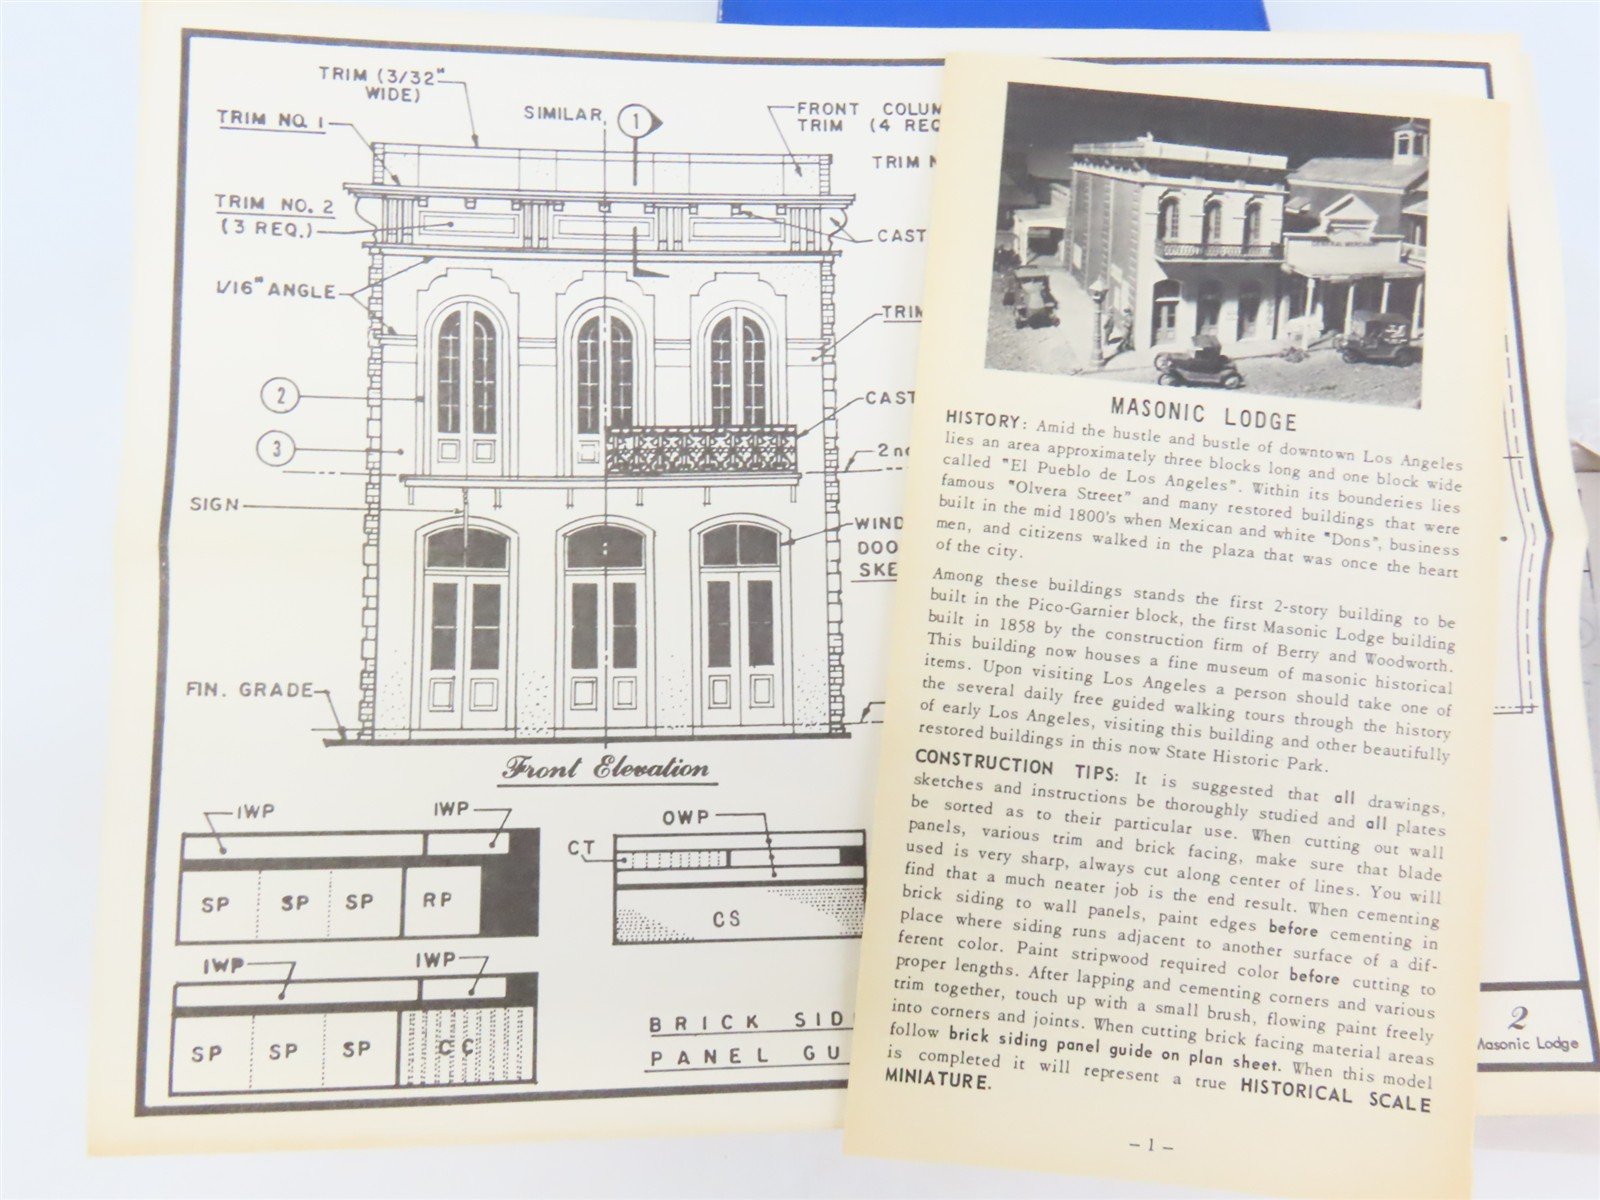 TRIM (3/32"
WIDE)
TRIM NO. 1
SIMILAR
1
FRONT COLUM
TRIM (4 REQ
TRIM N
TRIM NO. 2
(3 REQ.)
CAST
1/16" ANGLE
TRIM
2
CAST
3
2nd
SIGN
WIND
DOO
SKE
FIN. GRADE
Front Elevation
1WP
1WP
SP
SP
SP
RP
CT
OWP
CS
1WP
1WP
SP
SP
SP
CC
BRICK SID
PANEL GU
2
Masonic Lodge
MASONIC LODGE
HISTORY: Amid the hustle and bustle of downtown Los Angeles
lies an area approximately three blocks long and one block wide
called "El Pueblo de Los Angeles". Within its bounderies lies
famous "Olvera Street" and many restored buildings that were
built in the mid 1800's when Mexican and white "Dons", business
men, and citizens walked in the plaza that was once the heart
of the city.
Among these buildings stands the first 2-story building to be
built in the Pico-Garnier block, the first Masonic Lodge building
built in 1858 by the construction firm of Berry and Woodworth.
This building now houses a fine museum of masonic historical
items. Upon visiting Los Angeles a person should take one of
the several daily free guided walking tours through the history
of early Los Angeles, visiting this building and other beautifully
restored buildings in this now State Historic Park.
CONSTRUCTION TIPS: It is suggested that all drawings,
sketches and instructions be thoroughly studied and all plates
be sorted as to their particular use. When cutting out wall
panels, various trim and brick facing, make sure that blade
used is very sharp, always cut along center of lines. You will
find that a much neater job is the end result. When cementing
brick siding to wall panels, paint edges before cementing in
place where siding runs adjacent to another surface of a dif-
ferent color. Paint stripwood required color before cutting to
proper lengths. After lapping and cementing corners and various
trim together, touch up with a small brush, flowing paint freely
into corners and joints. When cutting brick facing material areas
follow brick siding panel guide on plan sheet. When this model
is completed it will represent a true HISTORICAL SCALE
MINIATURE.
- 1 -